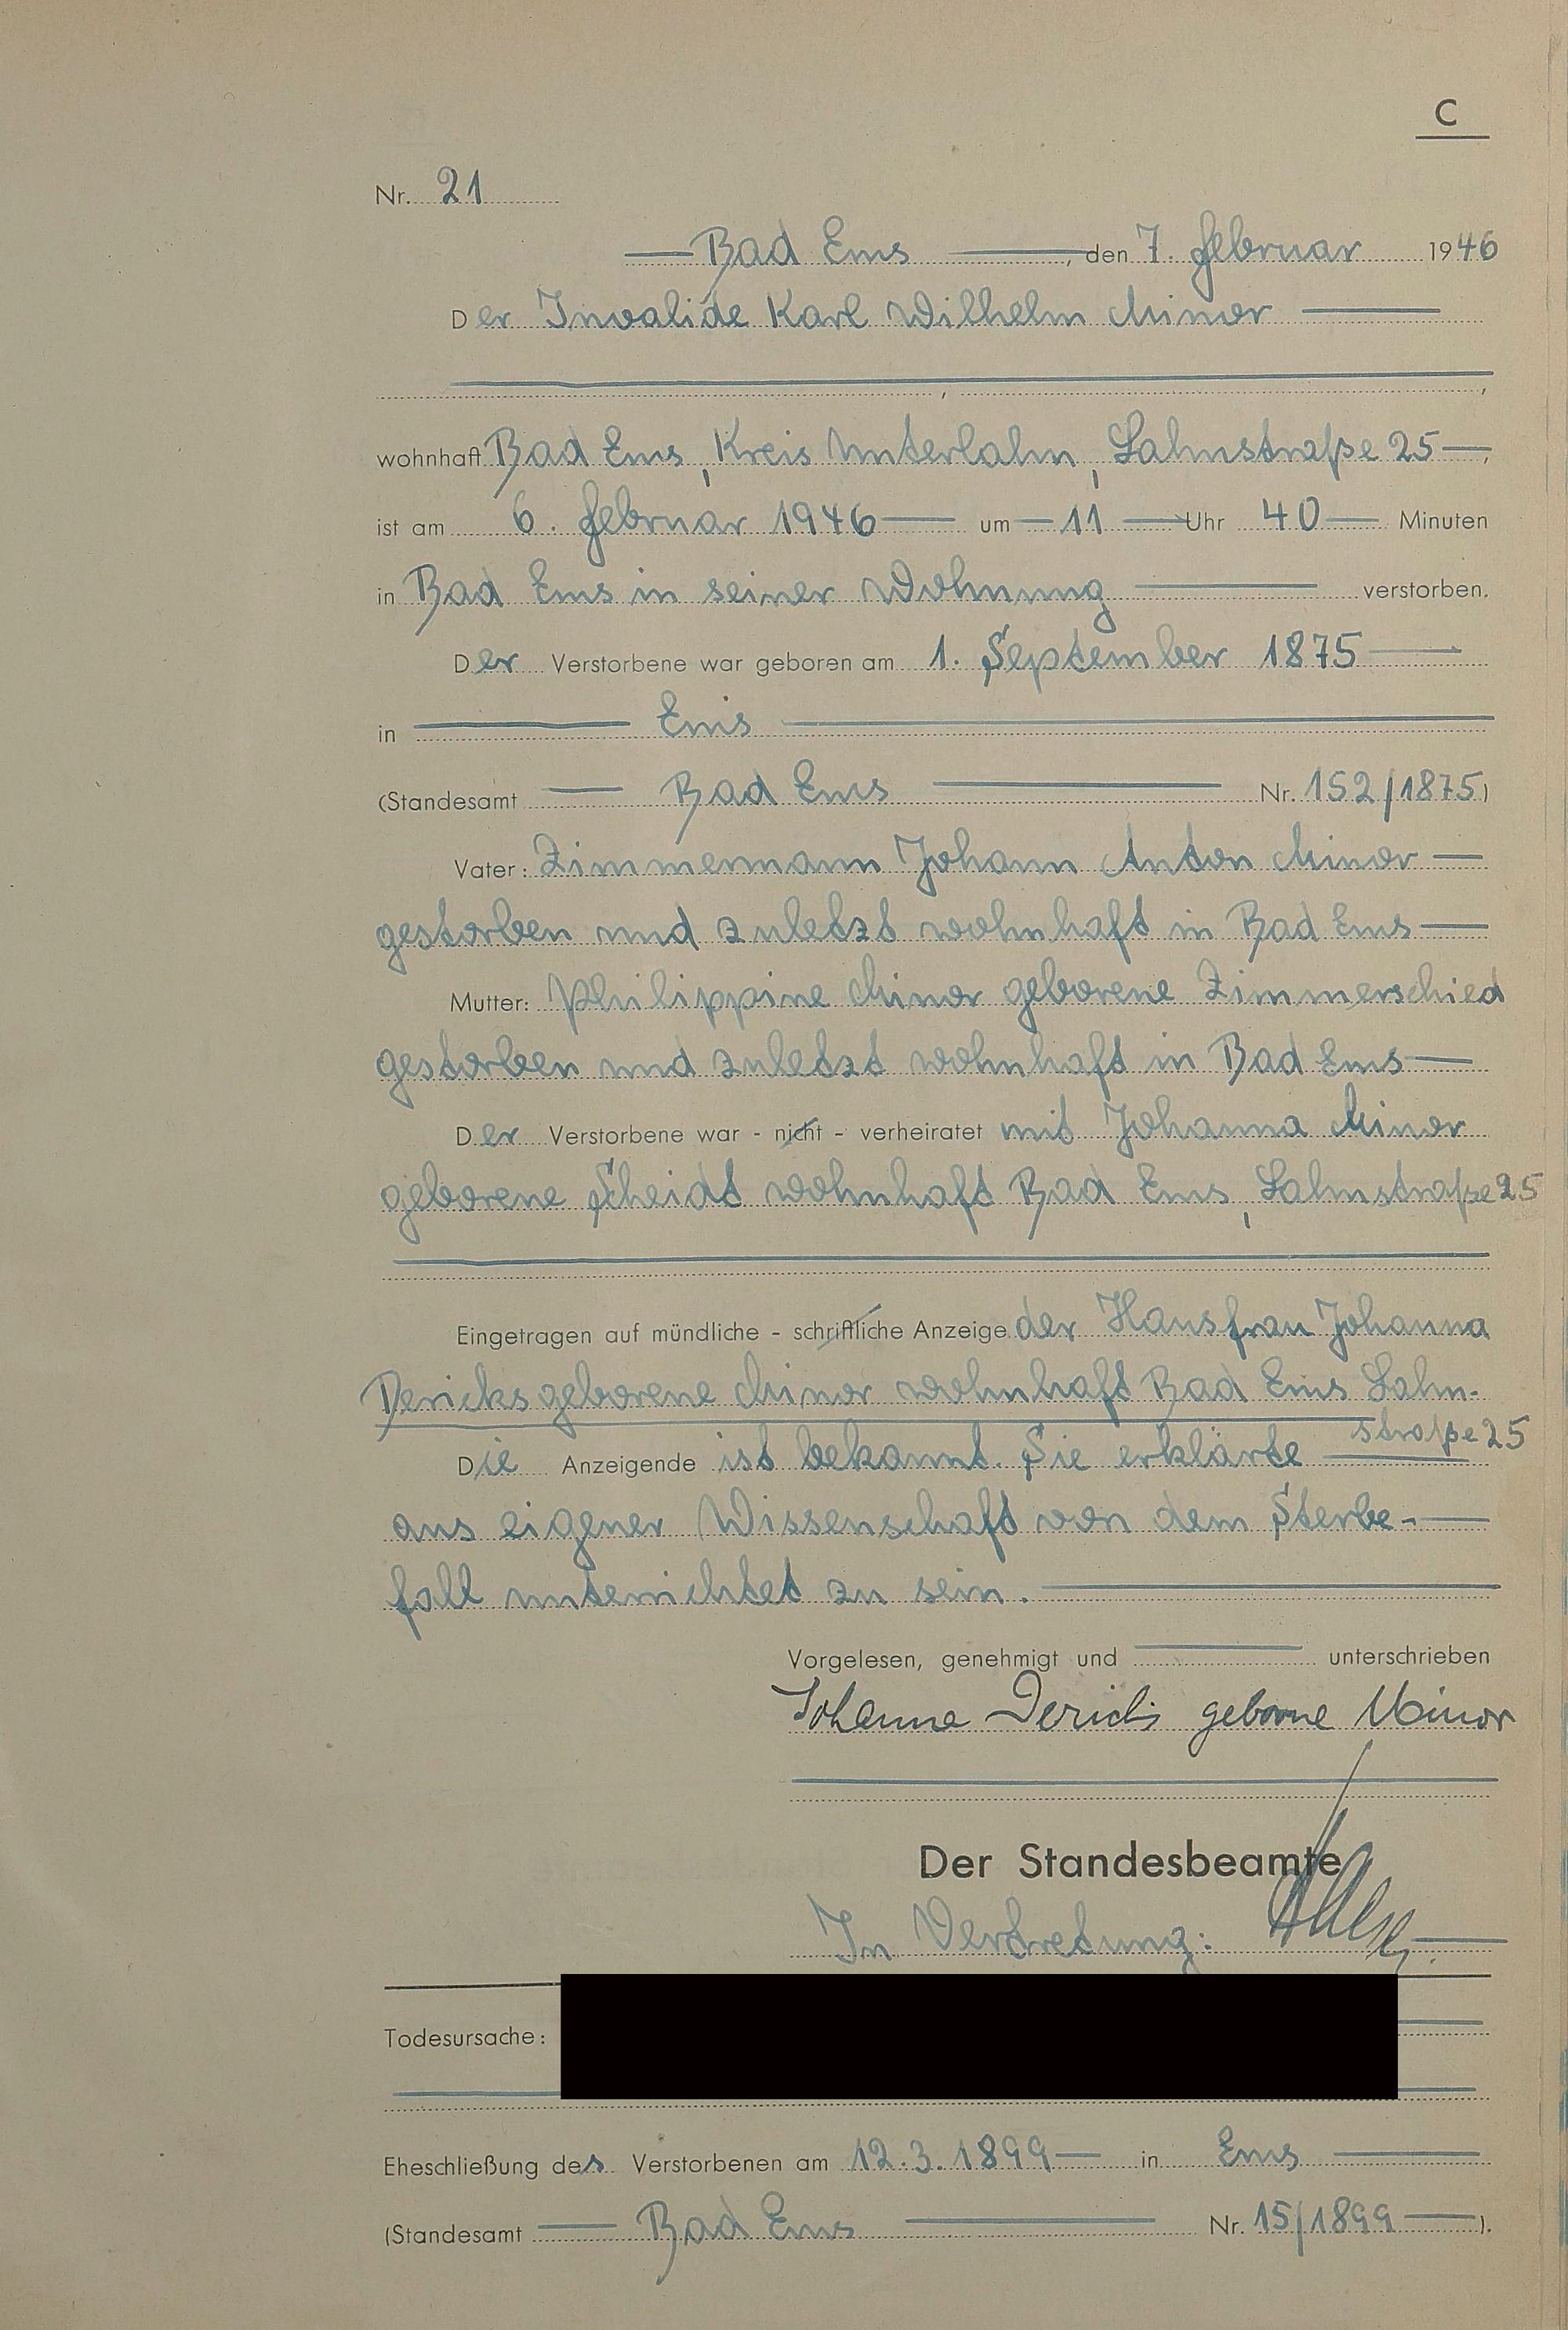 C
Nr. 21
Bad Ems, den 7. Februar 1946
Der Invalide Karl Wilhelm Minor
wohnhaft Bad Ems, Kreis Unterlahn, Lahnstraße 25,
ist am 6. Februar 1946 um 11 Uhr 40 Minuten
in Bad Ems in seiner Wohnung verstorben.
Der Verstorbene war geboren am 1. September 1875
in Ems
(Standesamt Bad Ems Nr. 152/1875)
Vater: Zimmermann Johann Anton Minor
gestorben und zuletzt wohnhaft in Bad Ems
Mutter: Philippine Minor geborene Zimmerschied
gestorben und zuletzt wohnhaft in Bad Ems
Der Verstorbene war - nicht - verheiratet mit Johanna Minor
geborene Scheidt wohnhaft Bad Ems, Lahnstraße 25
Eingetragen auf mündliche - schriftliche Anzeige der Hausfrau Johanna
Dericks geborene Minor wohnhaft Bad Ems Lahn-
straße 25
Die Anzeigende ist bekannt. Sie erklärte
aus eigener Wissenschaft von dem Sterbe-
fall unterrichtet zu sein.
Vorgelesen, genehmigt und unterschrieben
Johanna Dericks geborne Minor
Der Standesbeamte
In Vertretung:
Todesursache:
Eheschließung des Verstorbenen am 12.3.1899 in Ems
(Standesamt Bad Ems Nr. 15/1899).